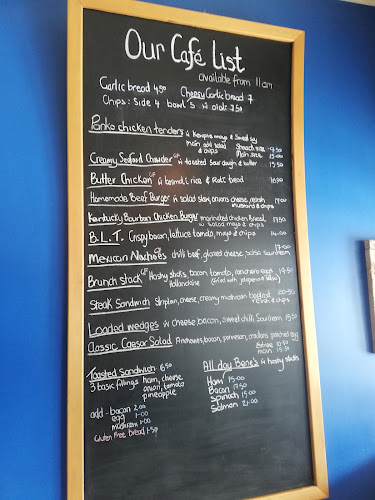 Our Café List
available from 11am
Garlic bread 4.50 Cheesy Garlic bread 7
Chips: Side 4 bowl 5 w aioli 7.50
Panko chicken tenders w kewpie mayo & Sweet soy
main add salad & chips
Snack size - 9.50
Main size 15.00
Creamy Seafood Chowder GF w toasted Sour dough & butter 15.50
Butter Chicken GF w basmati rice & Roti bread 16.50
Homemade Beef Burger w salad slaw, onions cheese, relish 17.00
mustard & chips
Kentucky Bourbon Chicken Burger marinated chicken 17.50
w salad mayo & chips
B.L.T. Crispy bacon, lettuce tomato, mayo & chips 14.00
Mexican Nachos chilli beef, glazed cheese, salsa Sour Cream 17.00
Brunch stack GF Hashy sticks, bacon tomato, ranchero eggs 19.50
Hollandaise
Steak Sandwich Striploin, cheese, creamy mushroom beetroot 20.50
relish & chips
Loaded wedges w cheese, bacon, sweet chilli Sour Cream 13.50
Classic Caesar Salad Anchovies, bacon, parmesan, croutons poached egg
Entree 10.50
main 15.50
Toasted Sandwich 6.50
3 basic fillings ham, cheese,
onion, tomato
pineapple
add - bacon 2.00
egg 1.00
mushroom 1.00
Gluten Free bread 1.50
All day Bene's w hashy sticks
Ham 15.00
Bacon 17.50
Spinach 15.00
Salmon 21.00